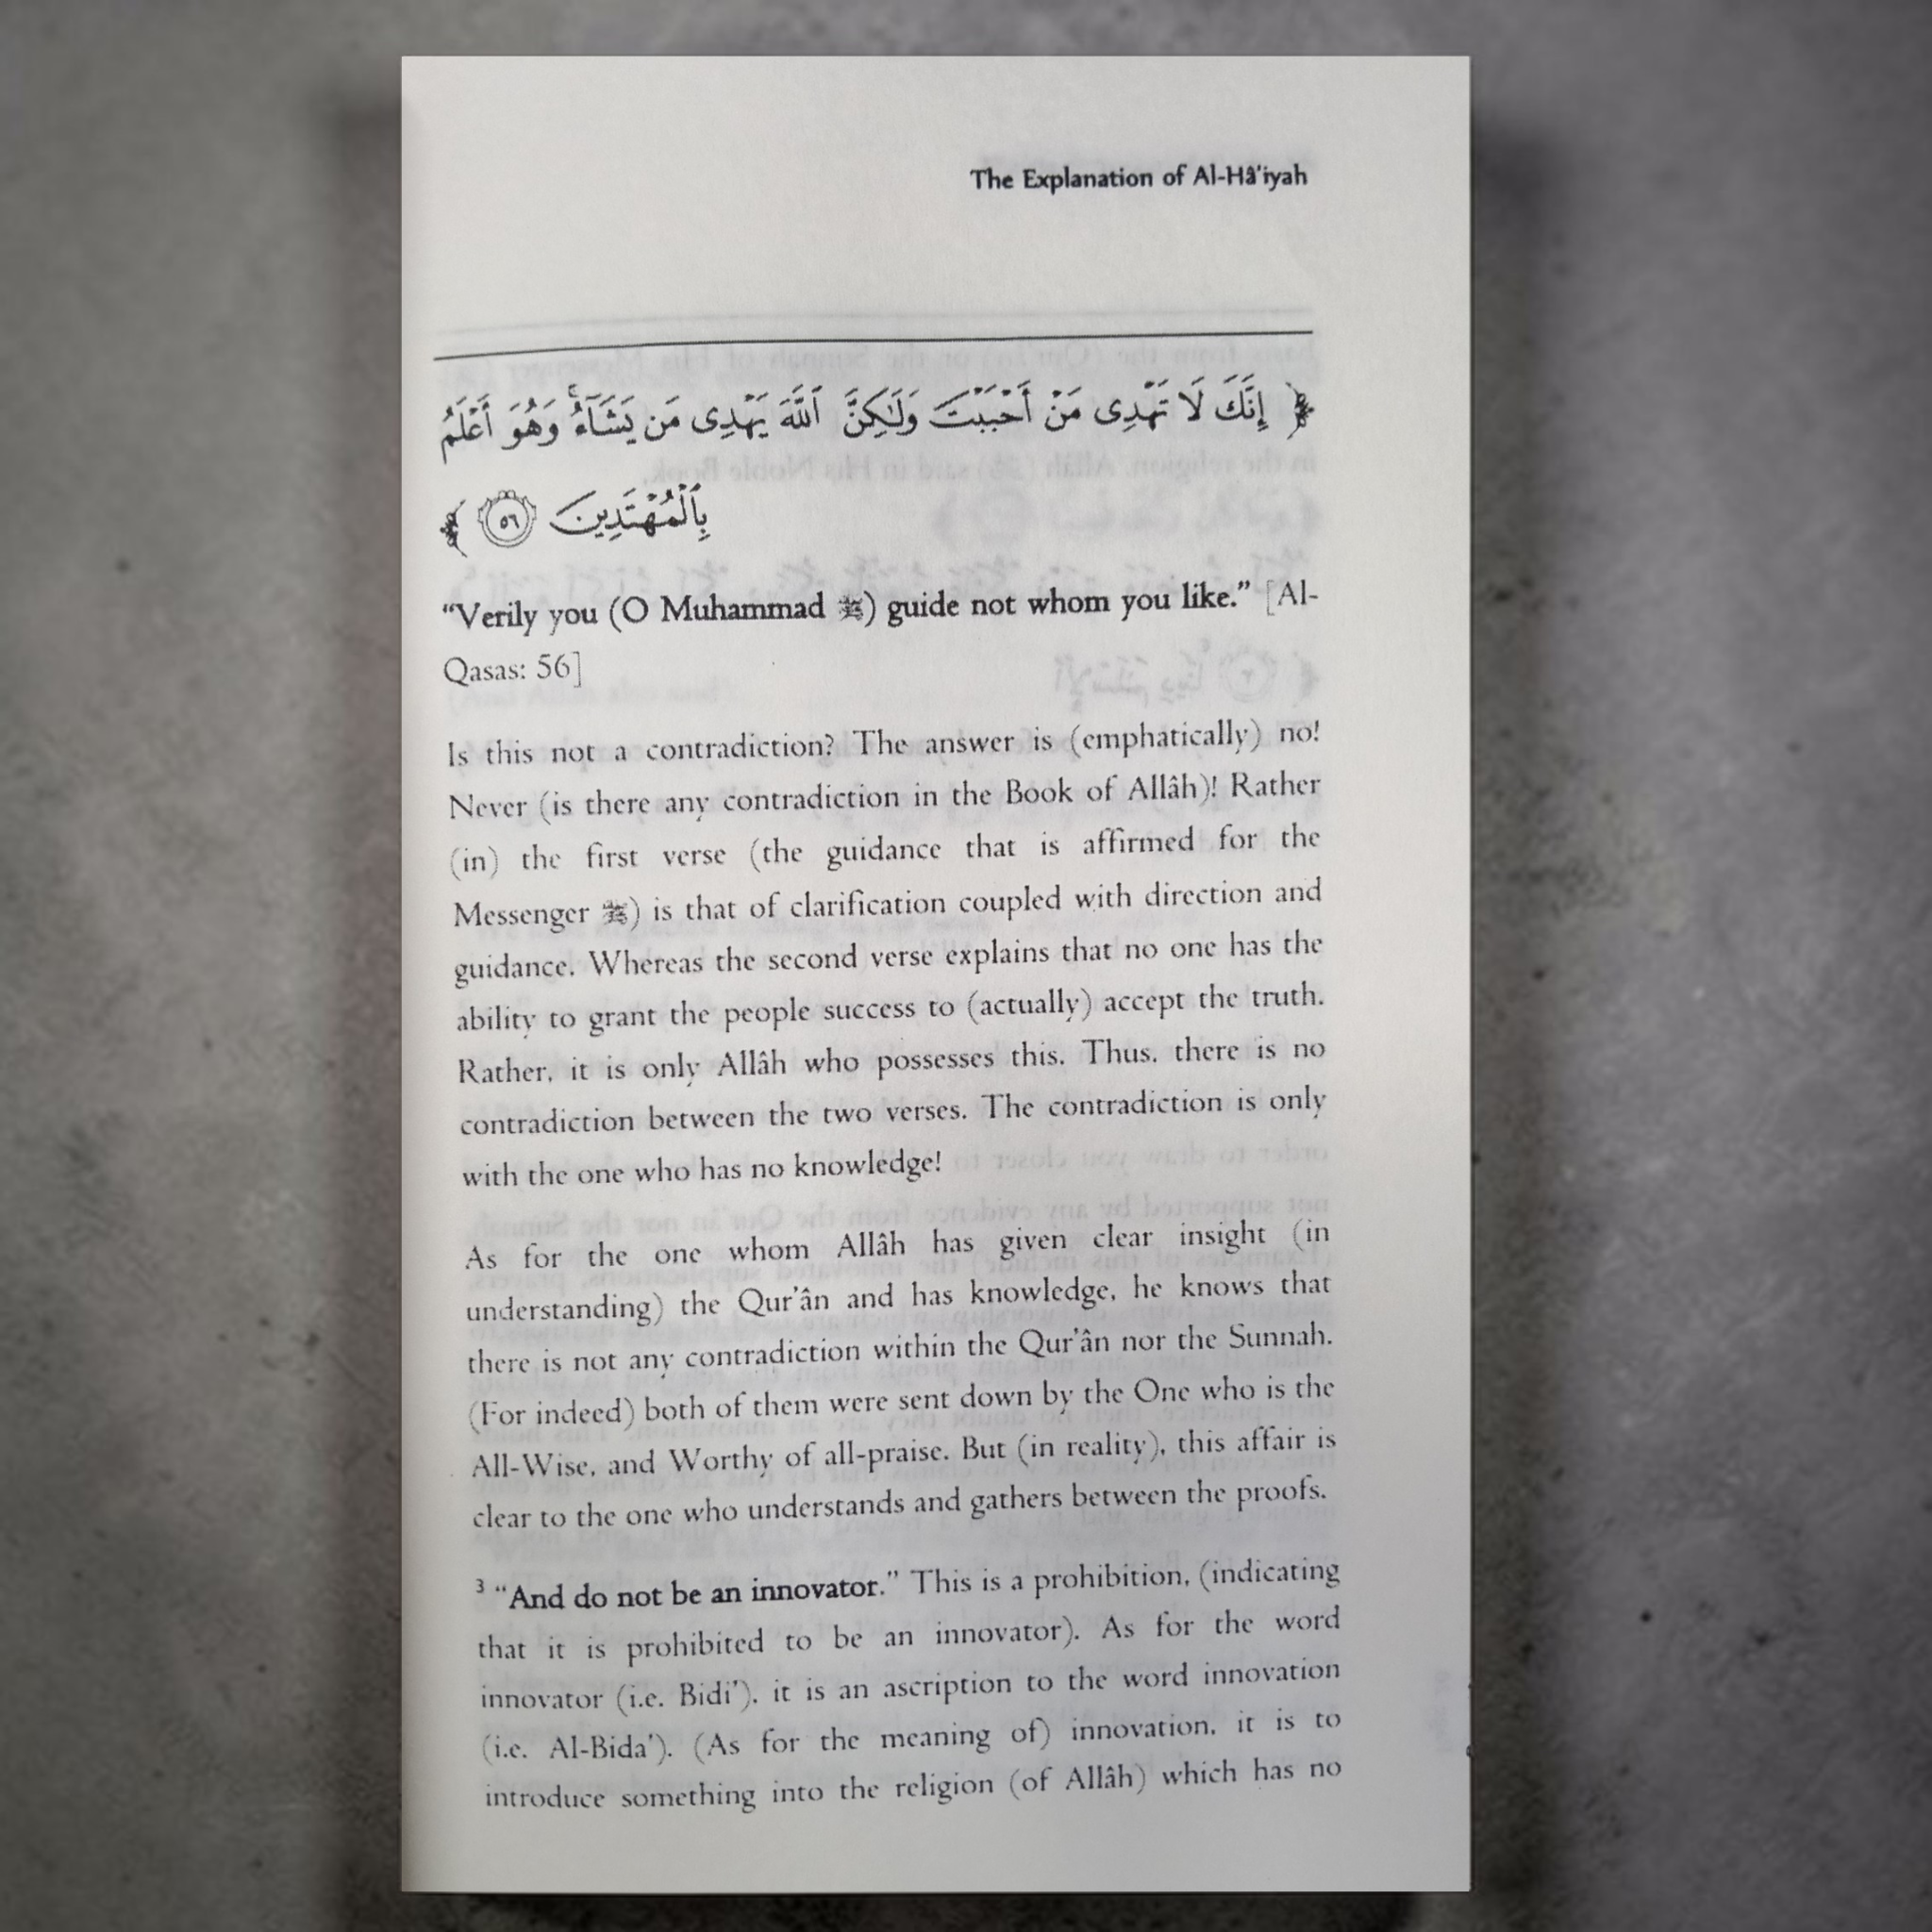 The Explanation of Al-Hâ'iyah
﴿ إِنَّكَ لَا تَهْدِى مَنْ أَحْبَبْتَ وَلَٰكِنَّ ٱللَّهَ يَهْدِى مَن يَشَآءُ ۚ وَهُوَ أَعْلَمُ
بِٱلْمُهْتَدِينَ ٥٦ ﴾
“Verily you (O Muhammad ﷺ) guide not whom you like.” [Al-
Qasas: 56]
Is this not a contradiction? The answer is (emphatically) no!
Never (is there any contradiction in the Book of Allâh)! Rather
(in) the first verse (the guidance that is affirmed for the
Messenger ﷺ) is that of clarification coupled with direction and
guidance. Whereas the second verse explains that no one has the
ability to grant the people success to (actually) accept the truth.
Rather, it is only Allâh who possesses this. Thus, there is no
contradiction between the two verses. The contradiction is only
with the one who has no knowledge!
As for the one whom Allâh has given clear insight (in
understanding) the Qur’ân and has knowledge, he knows that
there is not any contradiction within the Qur’ân nor the Sunnah.
(For indeed) both of them were sent down by the One who is the
All-Wise, and Worthy of all-praise. But (in reality), this affair is
clear to the one who understands and gathers between the proofs.
³ “And do not be an innovator.” This is a prohibition, (indicating
that it is prohibited to be an innovator). As for the word
innovator (i.e. Bidi’), it is an ascription to the word innovation
(i.e. Al-Bida’). (As for the meaning of) innovation, it is to
introduce something into the religion (of Allâh) which has no